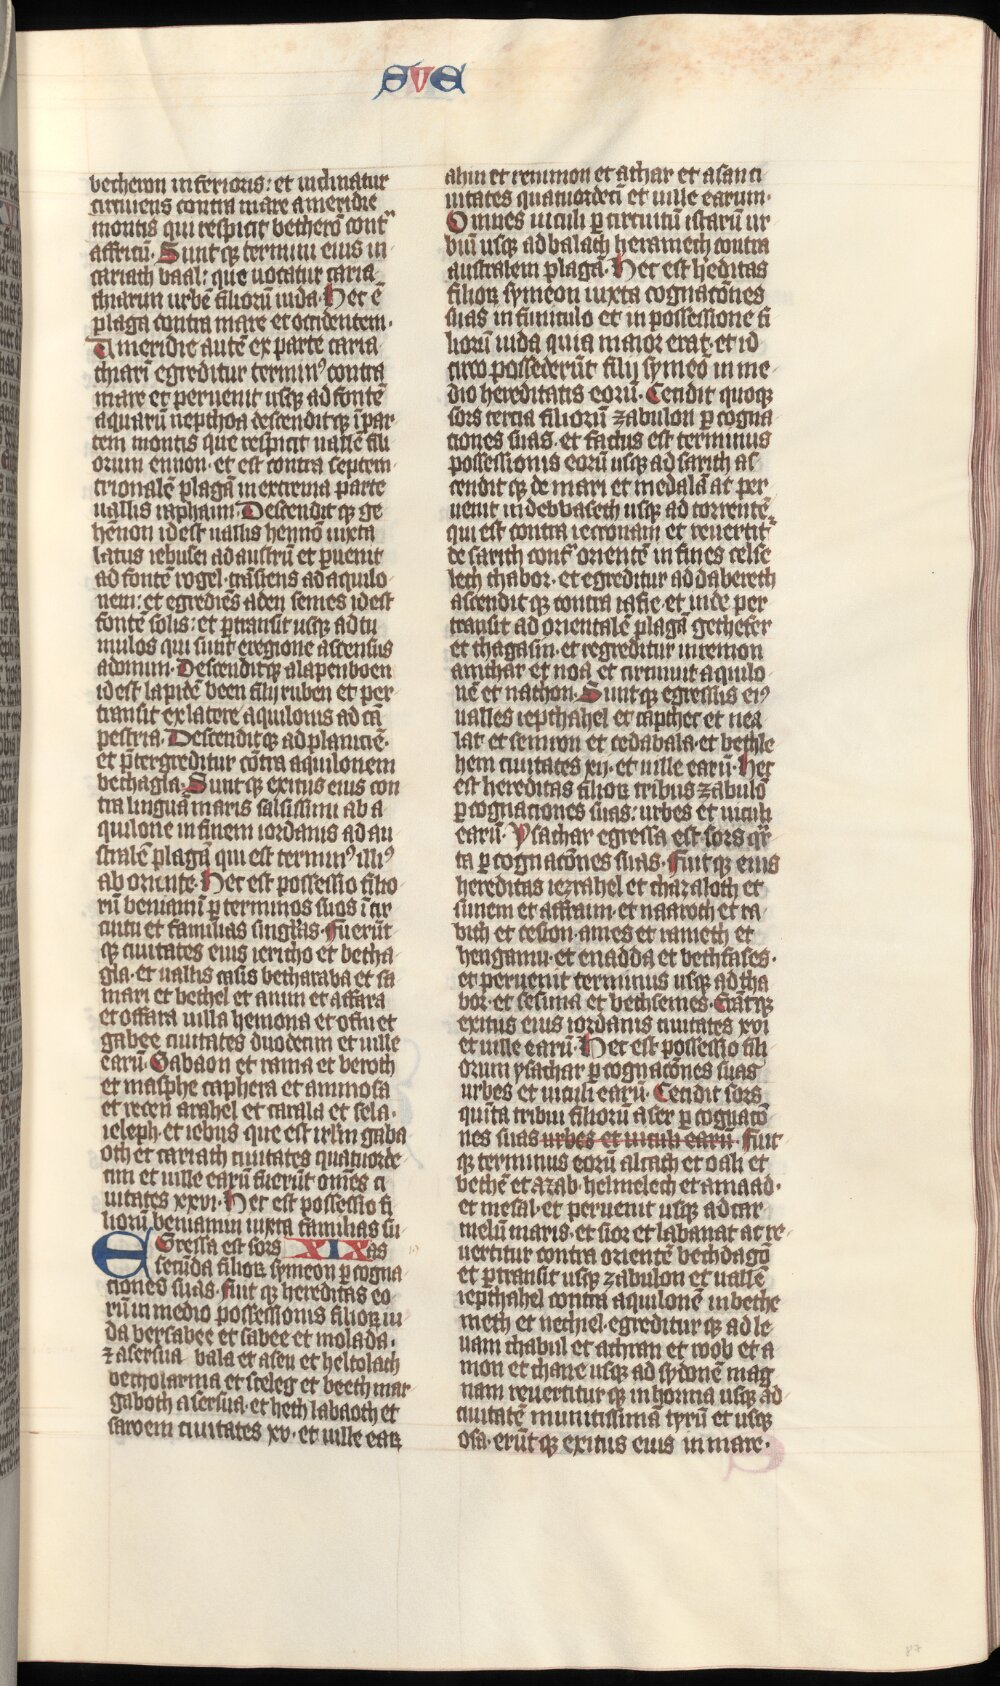 SVE
becheron inferioris: et inclinatur
circuiens contra mare a meridie
montis qui respicit betherō contᵃ
affricū. Sunt qꝫ termini eius in
cariath baal: que uocatur caria
thiarim urbē filiorū iuda. Hec ē
plaga contra mare et occidentem.
A meridie autē ex parte caria
thiarī egreditur terminꝰ contra
mare et peruenit usqꝫ ad fontē
aquarū nepthoa descenditqꝫ ī par
tem montis que respicit uallē fili
orum ennon. et est contra septem
trionalē plagā in extrema parte
uallis raphaim. Descendit qꝫ ge
hēnon id est uallis hennō iuxta
latus iebusei ad austrū et ꝑuenit
ad fontē rogel. trāsiens ad aquilo
nem: et egrediēs ad en semes id est
fontē solis: et ꝑtransit usqꝫ ad tu
mulos qui sunt e regione ascensus
adomim. Descenditqꝫ alapenboen
id est lapidē been filij ruben et per
transit ex latere aquilonis ad cā
pestria. Descenditqꝫ ad planiciē.
et p̄tergreditur cōtra aquilonem
bethagla. Sunt qꝫ exitus eius con
tra linguā maris salsissimi ab a
quilone in finem iordanis ad au
stralē plagā qui est terminꝰ illiꝰ
ab oriente. Hec est possessio filio
rū beniamī ꝑ terminos suos ī cir
cuitu et familias singlās. Fuerūt
qꝫ ciuitates eius iericho et betha
gla. et uallis casis betharaba et sa
mari et bethel et anim et affara
et offara uilla hemona et ofni et
gabee ciuitates duodecim et uille
earū. Gabaon et rama et beroth
et masphe caphera et ammosa
et recen arahel et carala et sela.
ieleph. et iebus que est irlm̄ gaba
oth et cariath ciuitates quatuorde
cim et uille earū fuerūt om̄es ci
uitates xxvi. Hec est possessio fi
liorū beniamin iuxta familias su
Egressa est sors XIX as
secūda filioꝝ symeon ꝑ cogna
ciones suas. fuit qꝫ hereditas eo
rū in medio possessionis filioꝝ iu
da bersabee et sabee et molada.
ꝫ asersua bala et asen et heltolach
becholarma et seeleg et beeth mar
gaboth asersua. et heth labaoth et
saroem ciuitates xv. et uille eaꝝ
ahin et remmon et athar et asan ci
uitates quatuordecī et uille earum.
Omnes uiculi ꝑ circuitū istarū ur
biū usqꝫ ad balach heramech contra
australem plagā. Hec est heditas
filioꝝ symeon iuxta cognacōnes
suas in funiculo et in possessione fi
liorū iuda quia maior erat. et id
circo possederūt filij symeō in me
dio hereditatis eorū. Cecidit quoqꝫ
sors tercia filiorū zabulon ꝑ cogna
ciones suas. et factus est terminus
possessionis eorū usqꝫ ad sarith as
cendit qꝫ de mari et medalā ac per
uenit in debbaseth usqꝫ ad torrentē
qui est contra iecronam et reuertitᷣ
de sarith contᵃ orientē in fines celse
leth thabor. et egreditur ad dabereth
ascendit qꝫ contra iafie. et inde per
transit ad orientalē plagā gethefer
et thagasin. et regreditur in remon
amchar et noa et circuiuit aquilo
nē et nathon. Sunt qꝫ egressus eiꝰ
ualles iepthahel et capthet et nea
lat et semron et cedabala. et bethle
hem ciuitates xij. et uille earū. Hec
est hereditas filioꝝ tribus zabulō
ꝑ cognaciones suas: urbes et uiculi
earū. Ysachar egressa est sors q̄r
ta ꝑ cognacōnes suas. Fuit qꝫ eius
hereditas iezrahel et chazaloth et
sunem et affraim. et naaroth et ra
bith et cesion. ames et rameth et
hengamu. et enadda et bethfases.
et peruenit terminus usqꝫ ad tha
bor. et sesima et bechsemes. Erātqꝫ
exitus eius iordanis ciuitates xvi
et uille earū. Hec est possessio fili
orum ysachar ꝑ cognacōnes suas
urbes et uiculi earū. Cecidit sors
quīta tribui filiorū aser ꝑ cognacō
nes suas urbes et uiculi earū. Fuit
qꝫ terminus eorū alcath et oali et
bethē et azab. helmelech et amaad.
et mesal. et peruenit usqꝫ ad car
melū maris. et sior et labanat ac re
uertitur contra orientē bechdagō
et ꝑtransit usqꝫ zabulon et uallē
iepthahel contra aquilonē in bethe
meth et nechiel. egreditur qꝫ ad le
uam chabul et achran et roob et a
mon et chane usqꝫ ad sydonē mag
nam reuertitur qꝫ in horma usqꝫ ad
ciuitatē munitissimā tyrū et usqꝫ
osa. erūt qꝫ exitus eius in mare.
87